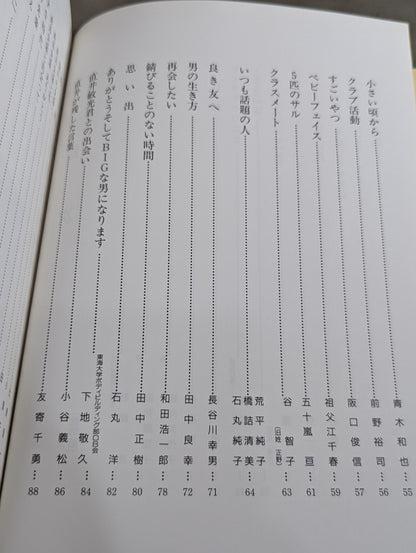 小さい頃から……青木和也…55
クラブ活動……前野裕司…56
すごいやつ……阪口俊信…57
ベビーフェイス……祖父江千春…59
5匹のサル……五十嵐亘…61
クラスメート……谷智子…63
(旧姓 正野)
いつも話題の人……荒平純子
橋詰清美…64
石丸純子
良き友へ……長谷川幸男…71
男の生き方……田中良幸…72
再会したい……和田浩一郎…78
錆びることのない時間……田中正樹…80
思い出……石丸洋…82
ありがとうそしてBIGな男になります
東海大学ボディビルディング部OB会
下地敬久…84
直井敏光君との出会い……小谷義松…86
直井が残した言葉……友寄千勇…88